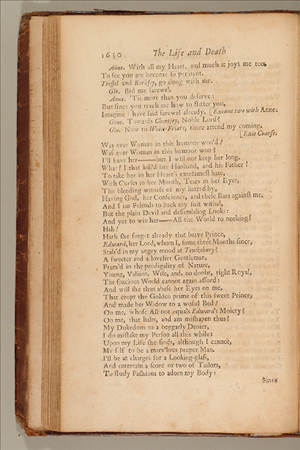 1630 The Life and Death
Anne. With all my Heart, and much it joys me too,
To see you are become so penitent.
Tressel and Barkley, go along with me.
Glo. Bid me farewel.
Anne. 'Tis more than you deserve:
But since you teach me how to flatter you,
Imagine I have said farewel already. [Exeunt two with Anne.
Gent. Towards Chertsey, Noble Lord?
Glo. No: to White-Friars, there attend my coming,
[Exit Coarse.
Was ever Woman in this humour woo'd?
Was ever Woman in this humour won?
I'll have her——but I will not keep her long.
What! I that kill'd her Husband, and his Father!
To take her in her Heart's extreamest hate,
With Curses in her Mouth, Tears in her Eyes,
The bleeding witness of my hatred by,
Having God, her Conscience, and these Bars against me,
And I no Friends to back my suit withal,
But the plain Devil and dissembling Looks:
And yet to win her——All the World to nothing!
Hah!
Hath she forgot already that brave Prince,
Edward, her Lord, whom I, some three Months since,
Stab'd in my angry mood at Tewksbury?
A sweeter and a lovelier Gentleman,
Fram'd in the prodigality of Nature,
Young, Valiant, Wise, and, no doubt, right Royal,
The spacious World cannot again afford:
And will she then abase her Eyes on me,
That cropt the Golden prime of this sweet Prince,
And made her Widow to a woful Bed?
On me, whose All not equals Edward's Moiety?
On me, that halts, and am mishapen thus?
My Dukedom to a beggarly Denier,
I do mistake my Person all this while:
Upon my Life she finds, although I cannot,
My self to be a marv'lous proper Man.
I'll be at charges for a Looking-glass,
And entertain a score or two of Tailors,
To study Fashions to adorn my Body:
Since